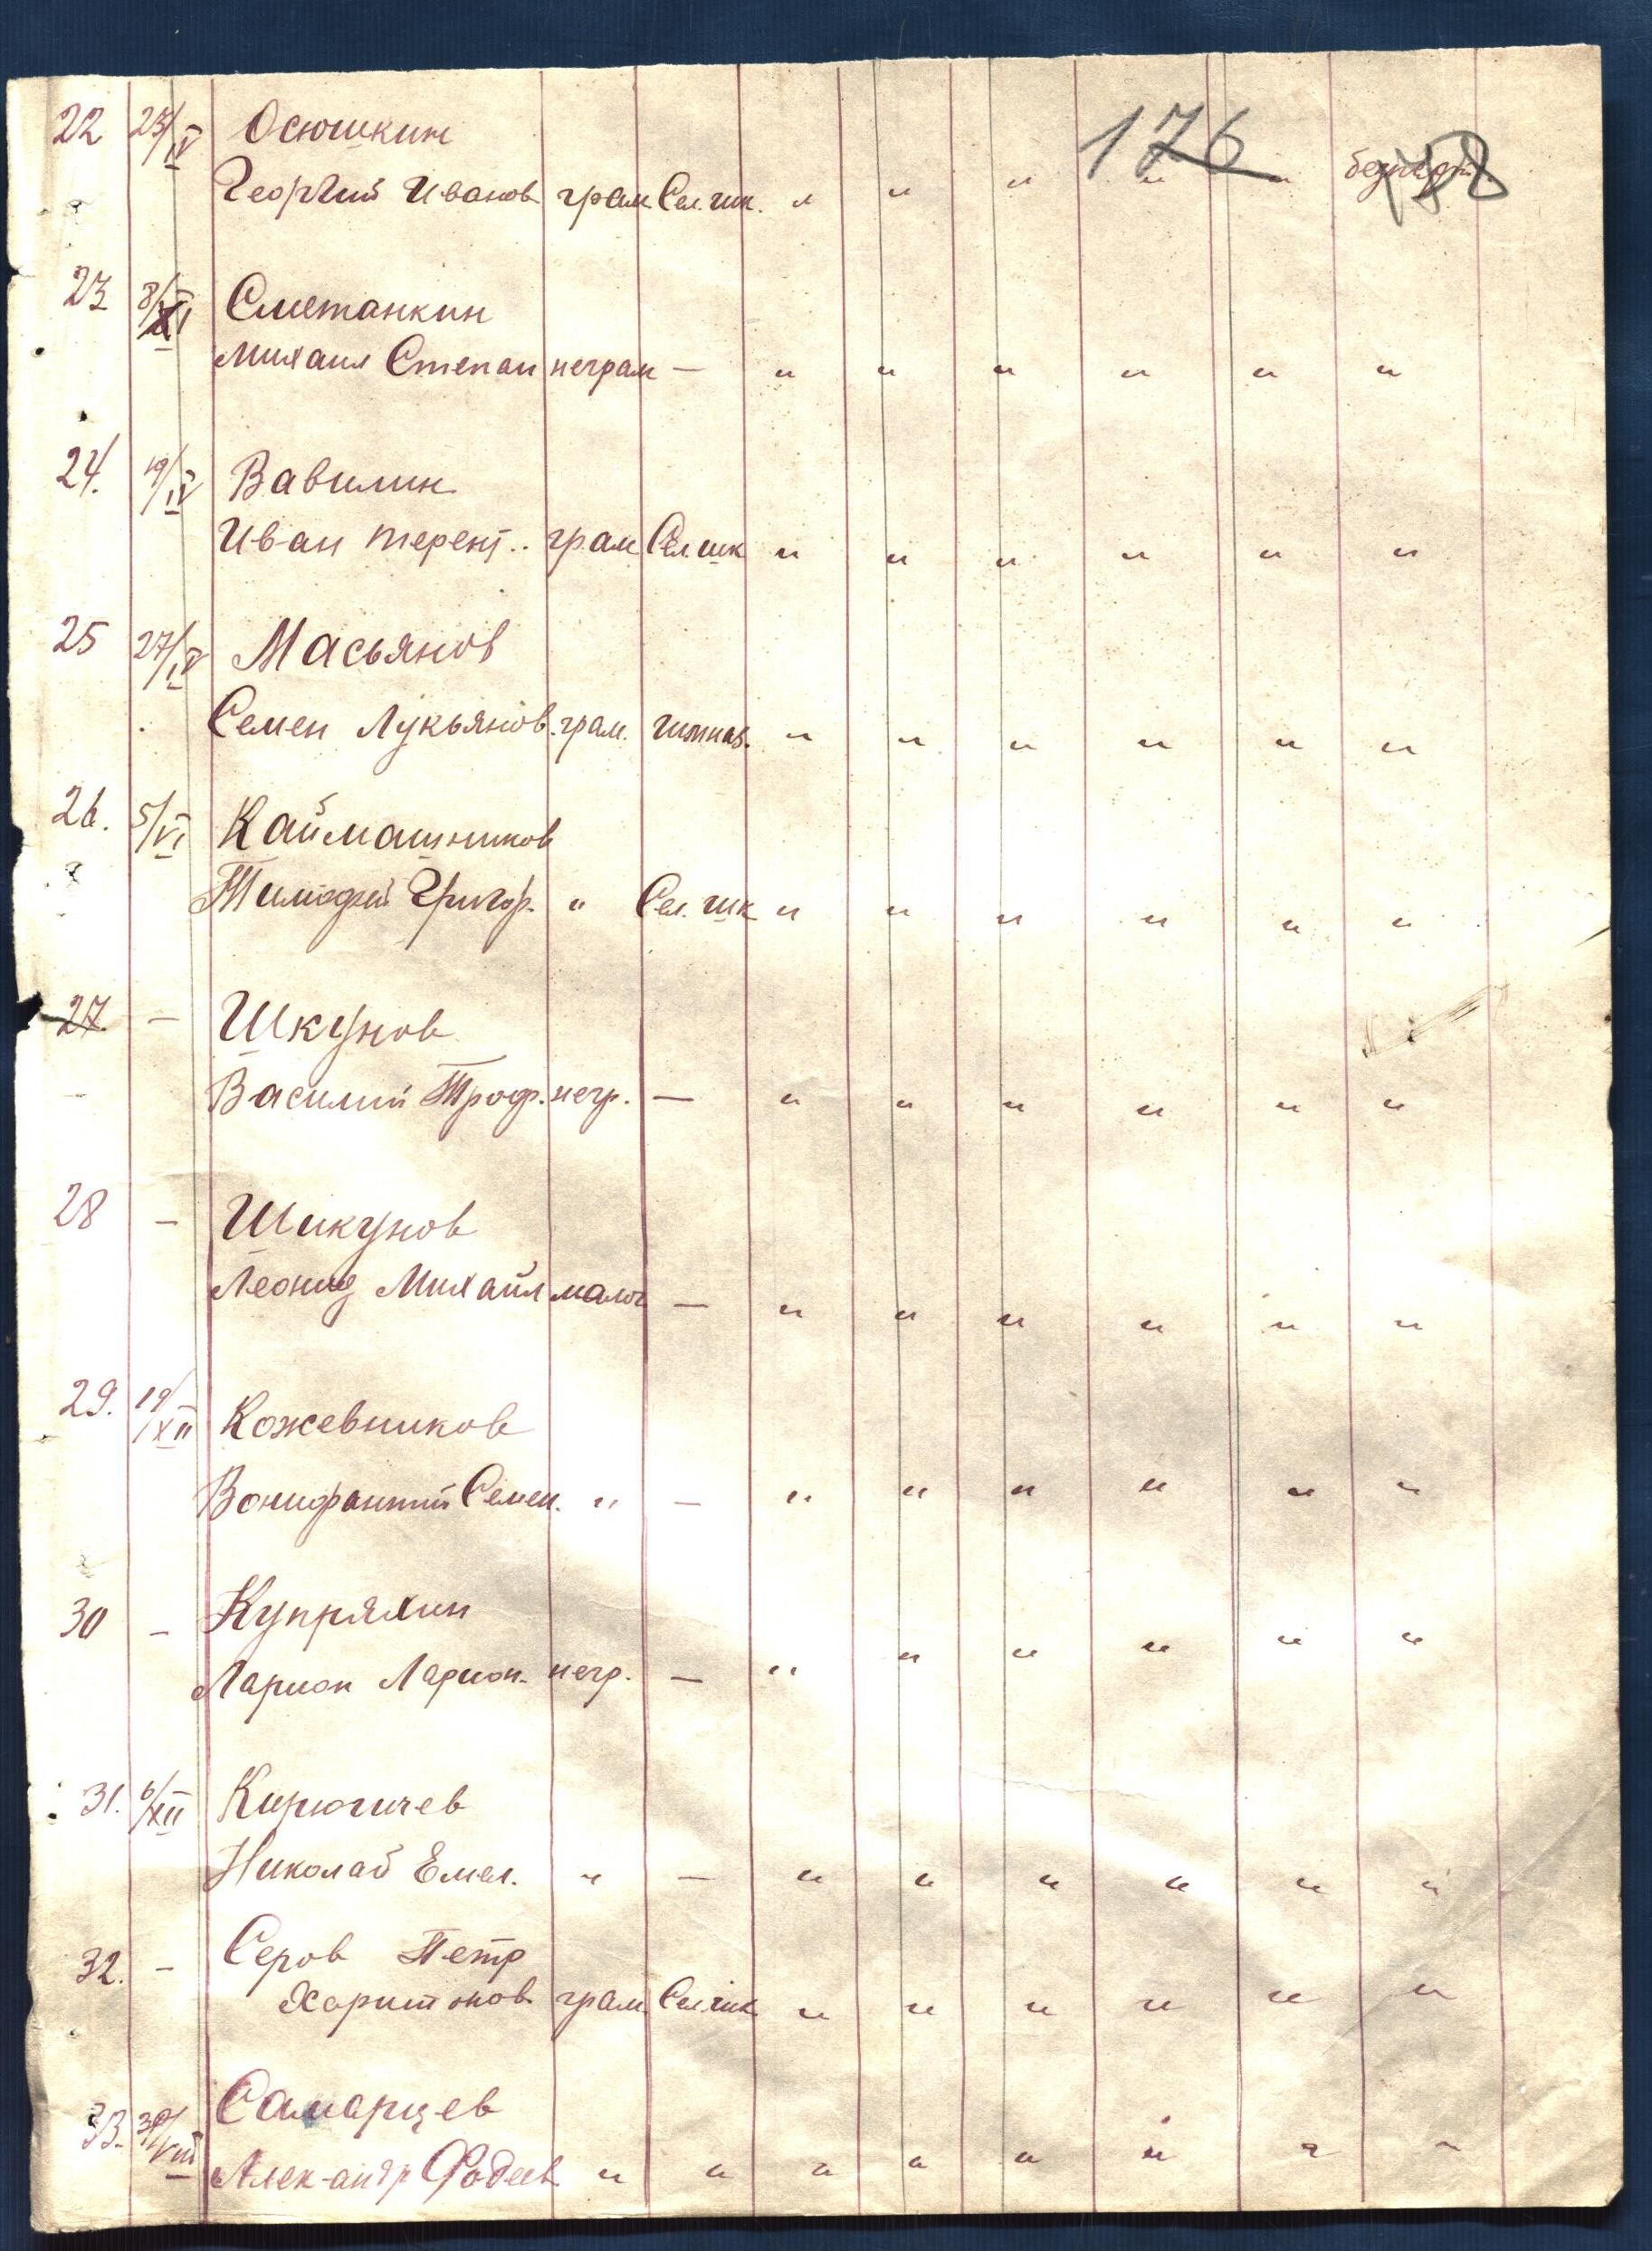 176
22 23/IV Осюшкин
Георгий Иванов грам Сел. шк. " " " " "
23 8/XI Сметанкин
Михаил Степан неграм — " " " " " "
24. 19/IV Вавилин
Иван терент.. грам Сел шк " " " " " "
25 27/IV Масьянов
Семен Лукьянов. грам. гимназ. " " " " " "
26. 5/VI Каймашников
Тимофей Григор. " Сел. шк " " " " " "
27. — Шкунов
Василий Троф. негр. — " " " " " "
28 — Шикунов
Леонид Михайл малог — " " " " " "
29. 19/XII Кожевников
Вонифантий Семен. " — " " " " " "
30 — Купряхин
Ларион Ларион. негр. — " " " " " "
31. 6/XII Кирюгичев
Николай Емел. " — " " " " " "
32. — Серов Петр
Харитонов грам Сел. шк " " " " " "
33. 30/VIII Самарцев
Алек-андр Фадеев " " " " " " " "